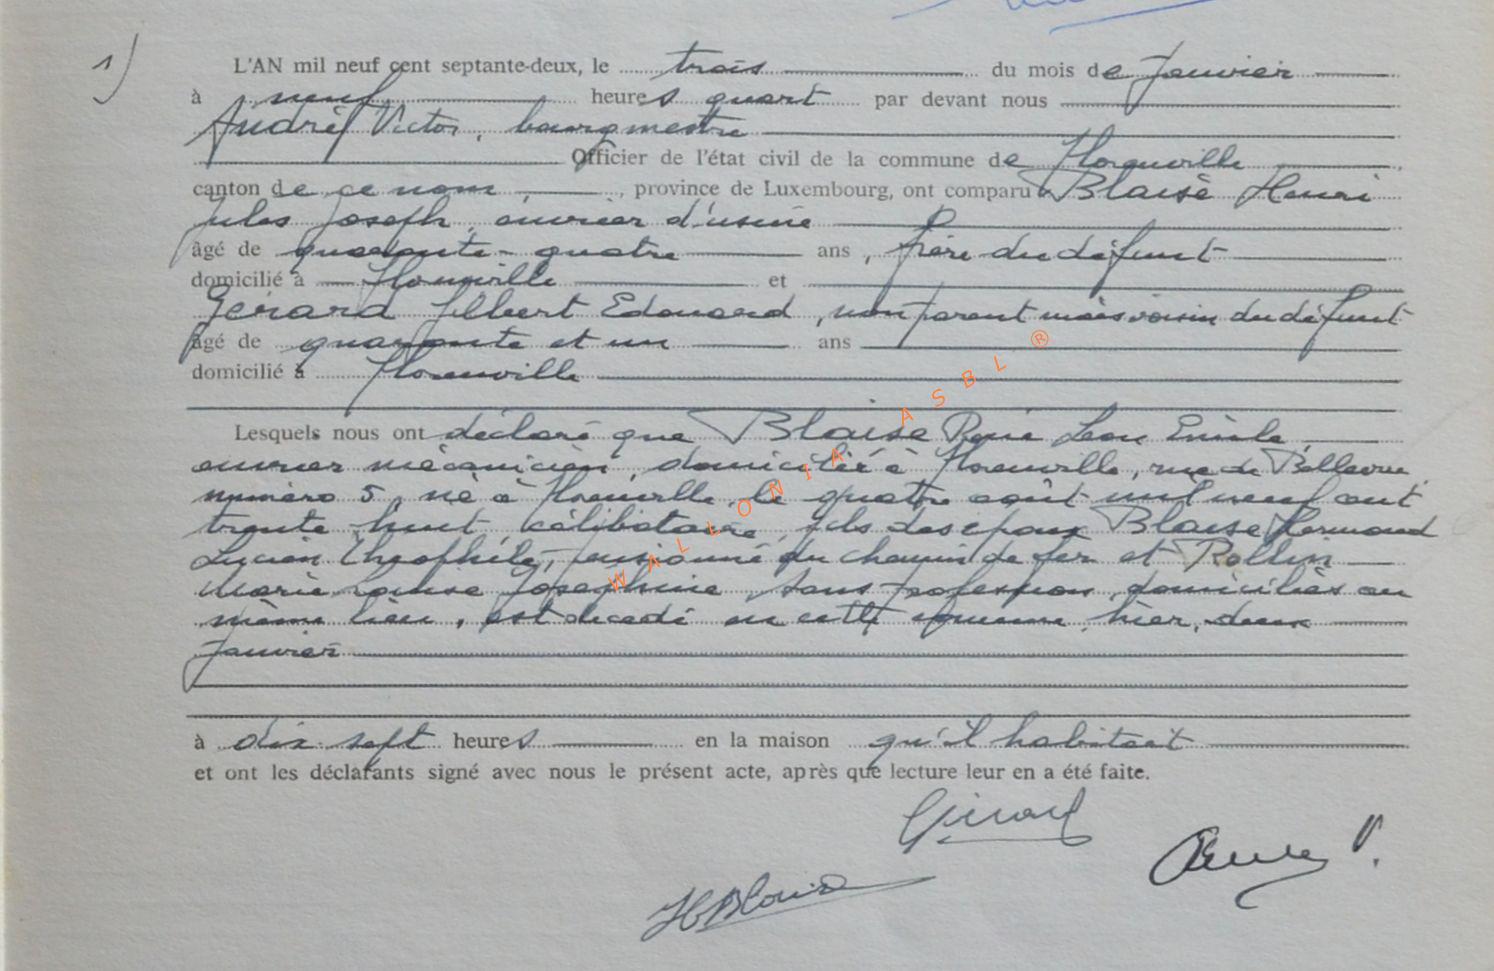 1)
L'AN mil neuf cent septante-deux, le trois du mois de Janvier
à neuf heures quart par devant nous
André Victor, bourgmestre
Officier de l'état civil de la commune de Florenville
canton de ce nom, province de Luxembourg, ont comparu Blaise Henri
Jules Joseph, ouvrier d'usine
âgé de quarante-quatre ans, frère du défunt
domicilié à Florenville et
Gérard Albert Edouard, non parent mais voisin du défunt
âgé de quarante et un ans
domicilié à Florenville
Lesquels nous ont déclaré que Blaise René Leon Emile,
ouvrier mécanicien, domicilié à Florenville, rue de Bellevue
numéro 5, né à Florenville, le quatre août mil neuf cent
trente huit, célibataire, fils des époux Blaise
Lucien Théophile, pensionné du chemin de fer et Rollin
Marie Louise Josephine, sans profession, domiciliés au
même lieu, est décédé en cette commune, hier, deux
Janvier
à dix-sept heures en la maison qu'il habitait
et ont les déclarants signé avec nous le présent acte, après que lecture leur en a été faite.
Gérard
HBlaise
WALLONIA ASBL ®